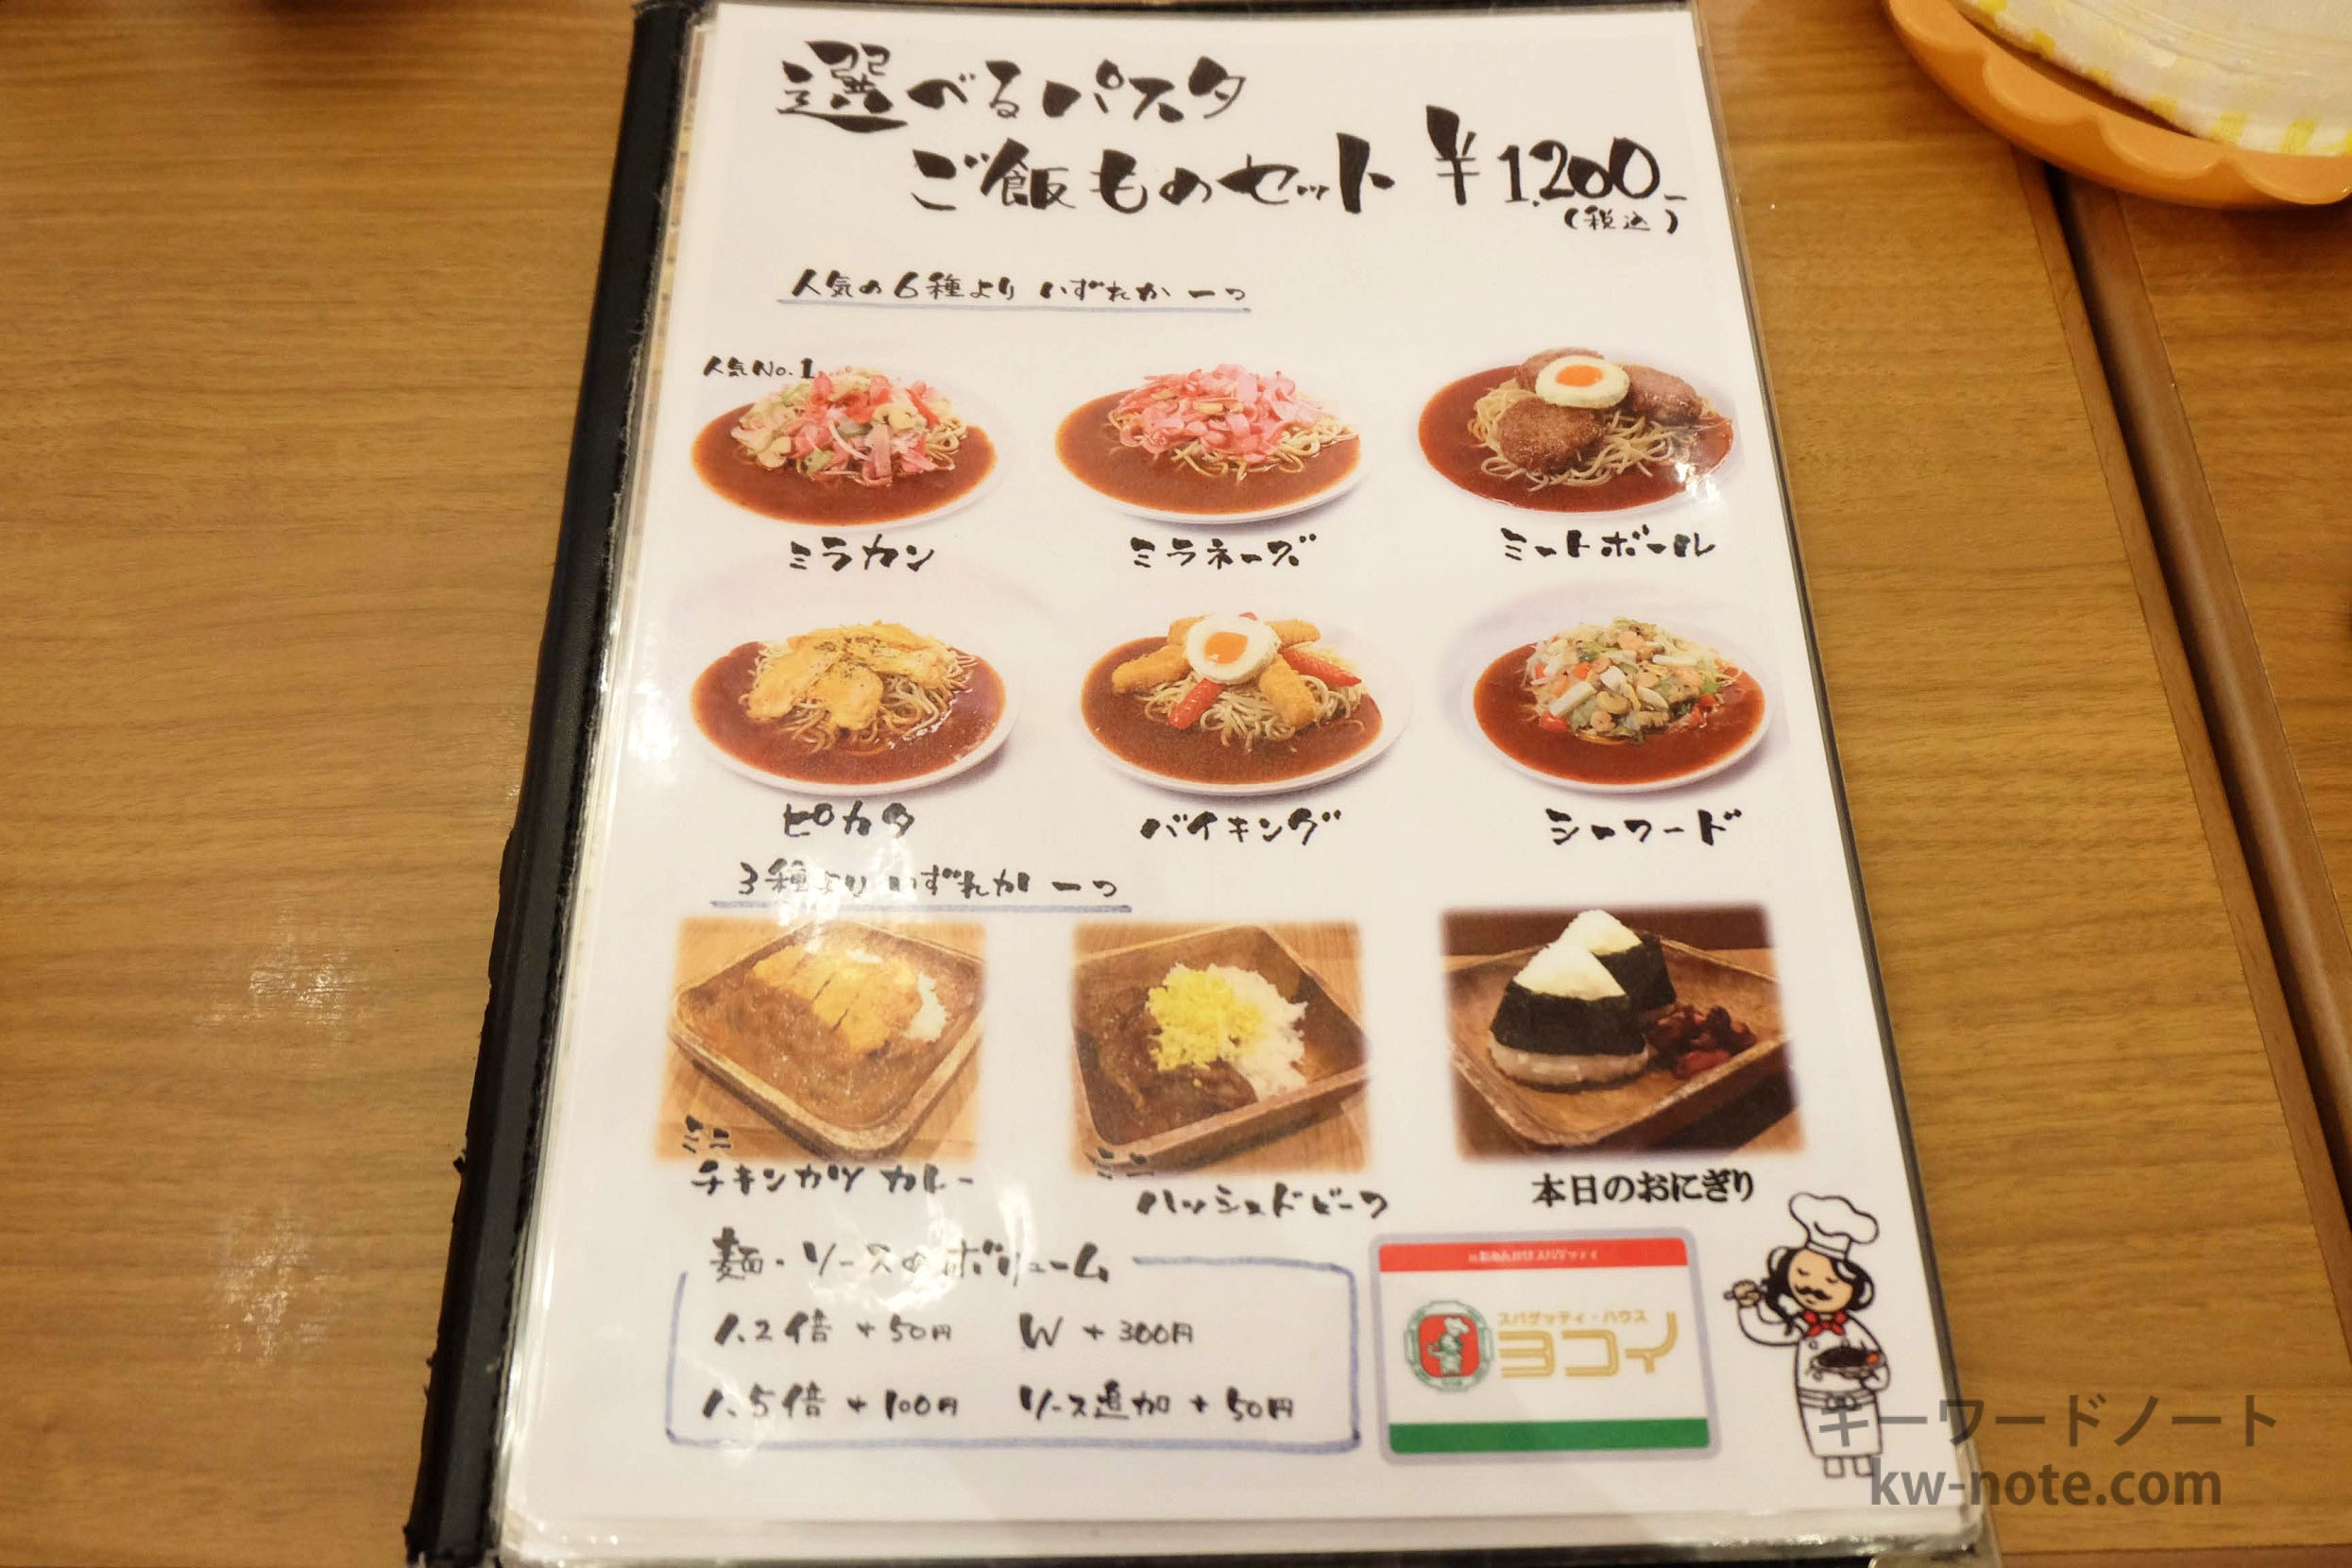 選べるパスタ
ご飯ものセット ¥1,200-
(税込)
人気の6種より いずれか 一つ
人気No.1
ミラカン
ミラネーズ
ミートボール
ピカタ
バイキング
シーフード
3種より いずれか 一つ
ミニ
チキンカツ カレー
ミニ
ハッシュドビーフ
本日のおにぎり
麺・ソースのボリューム
1.2倍 +50円 W +300円
1.5倍 +100円 ソース追加 +50円
スパゲッティ・ハウス
ヨコイ
キーワードノート
kw-note.com